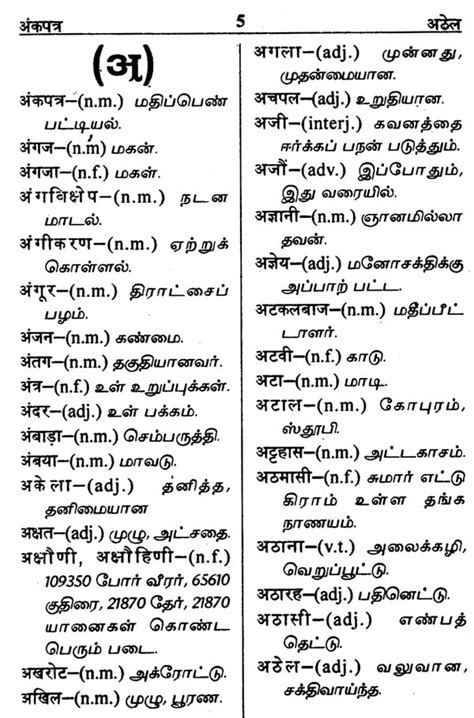 अंकपत्र 5 अठेल
(अ)
अंकपत्र—(n.m.) மதிப்பெண்
பட்டியல்.
अंगज—(n.m) மகன்.
अंगजा—(n.f.) மகள்.
अंगविक्षेप—(n.m.) நடன
மாடல்.
अंगीकरण—(n.m.) ஏற்றுக்
கொள்ளல்.
अंगूर—(n.m.) திராட்சைப்
பழம்.
अंजन—(n.m.) கண்மை.
अंतग—(n.m.) தகுதியானவர்.
अंत्र—(n.f.) உள் உறுப்புக்கள்.
अंदर—(adj.) உள் பக்கம்.
अंबाड़ा—(n.m.) செம்பருத்தி.
अंबया—(n.m.) மாவடு.
अकेला—(adj.) தனித்த,
தனிமையான
अक्षत—(adj.) முழு, அட்சதை.
अक्षौणी, अक्षौहिणी—(n.f.)
109350 போர் வீரர், 65610
குதிரை, 21870 தேர், 21870
யானைகள் கொண்ட
பெரும் படை.
अखरोट—(n.m.) அக்ரோட்டு.
अखिल—(n.m.) முழு, பூரண.
अगला—(adj.) முன்னது,
முதன்மையான.
अचपल—(adj.) உறுதியான.
अजी—(interj.) கவனத்தை
ஈர்க்கப் பநன் படுத்தும்.
अजौं—(adv.) இப்போதும்,
இது வரையில்.
अज्ञानी—(n.m.) ஞானமில்லா
தவன்.
अज्ञेय—(adj.) மனோசக்திக்கு
அப்பாற் பட்ட.
अटकलबाज—(n.m.) மதீப்பீட்
டாளர்.
अटवी—(n.f.) காடு.
अटा—(n.m.) மாடி.
अटाल—(n.m.) கோபுரம்,
ஸ்தூபி.
अट्टहास—(n.m.) அட்டகாசம்.
अठमासी—(n.f.) சுமார் எட்டு
கிராம் உள்ள தங்க
நாணயம்.
अठाना—(v.t.) அலைக்கழி,
வெறுப்பூட்டு.
अठारह—(adj.) பதினெட்டு.
अठासी—(adj.) எண்பத்
தெட்டு.
अठेल—(adj.) வலுவான,
சக்திவாய்ந்த.